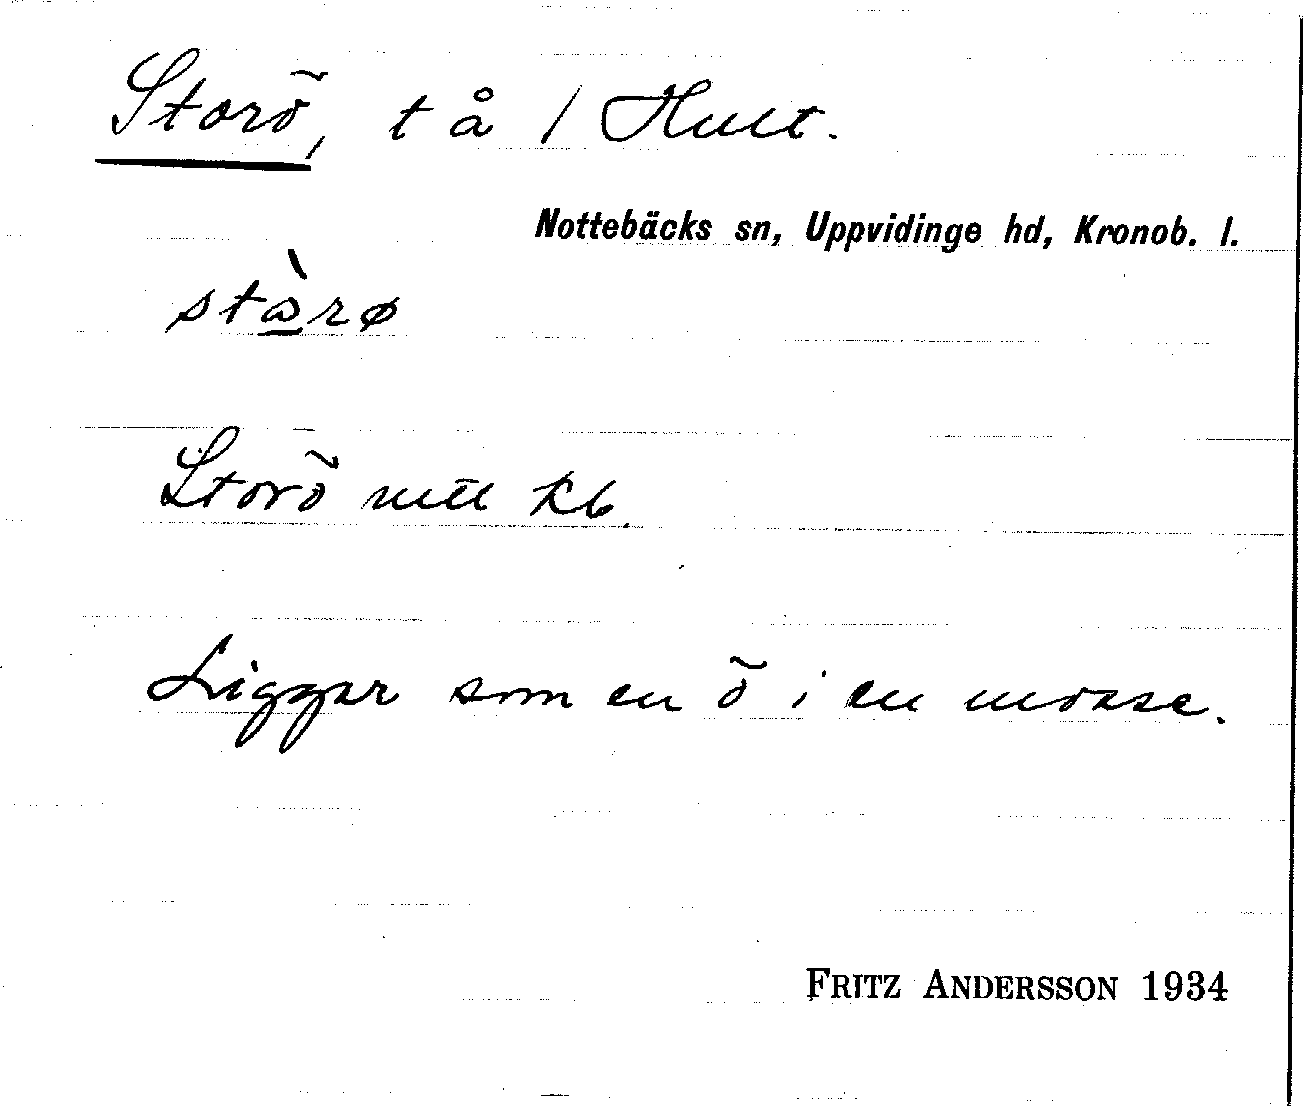 Storö, t å 1 Hult.
Nottebäcks sn, Uppvidinge hd, Kronob. l.
stὼ̲rø
Storö utt kb.
Ligger som en ö i en mosse.
FRITZ ANDERSSON 1934